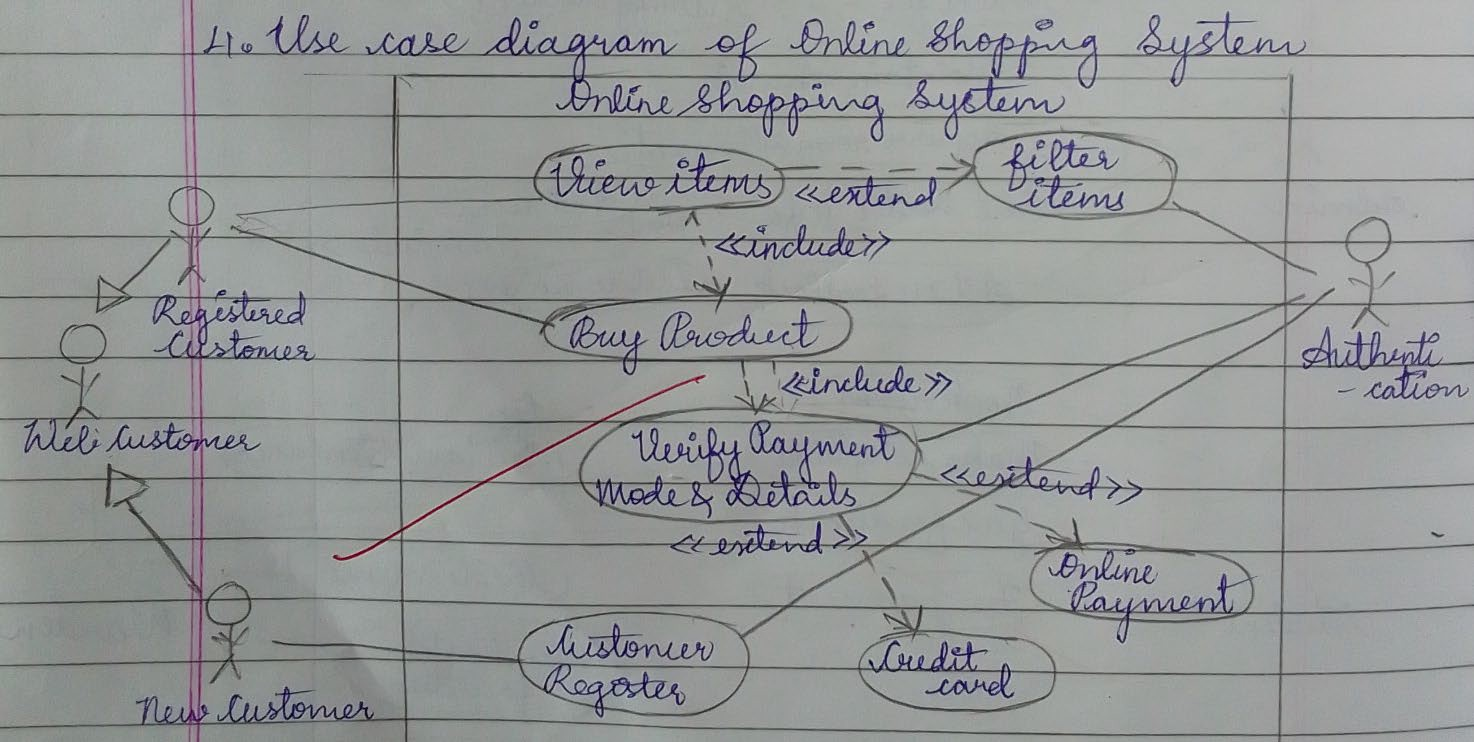 4. Use case diagram of Online Shopping System
Online Shopping System
View items
<<extend
filter
items
<<include>>
Registered
Customer
Buy Product
Authenti
-cation
<<include>>
Web Customer
Verify Payment
Mode & Details
<<extend>>
<<extend>>
Online
Payment
Customer
Register
Credit
card
New Customer